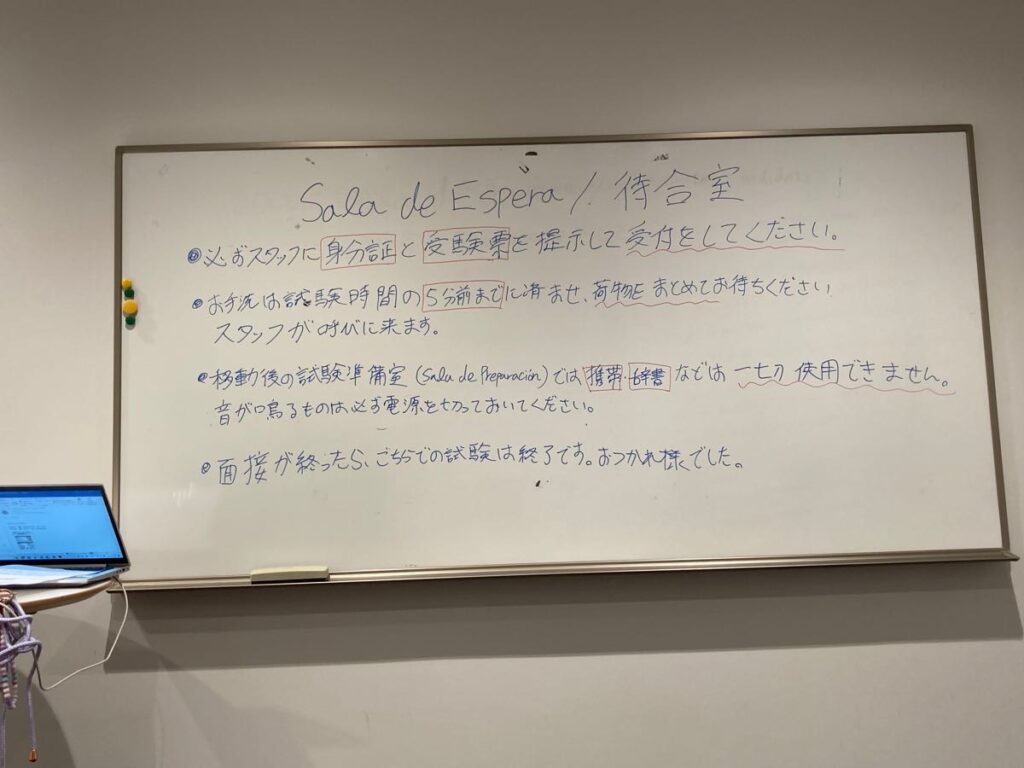 Sala de Espera / 待合室
●必ずスタッフに身分証と受験票を提示して受付をしてください。
●お手洗は試験時間の5分前までに済ませ、荷物をまとめてお待ちください
スタッフが呼びに来ます。
●移動後の試験準備室(Sala de Preparación)では携帯・辞書などは一切使用できません。
音が鳴るものは必ず電源を切っておいてください。
●面接が終ったら、こちらでの試験は終了です。おつかれ様でした。